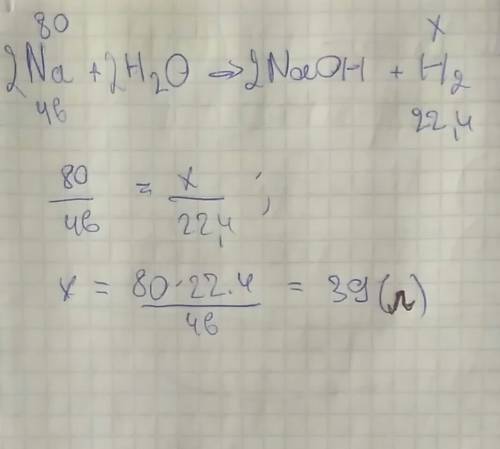 80 x
2Na + 2H₂O ⇒ 2NaOH + H₂
46 22,4
80/46 = x/22,4 ;
x = 80·22.4/46 = 39(л)